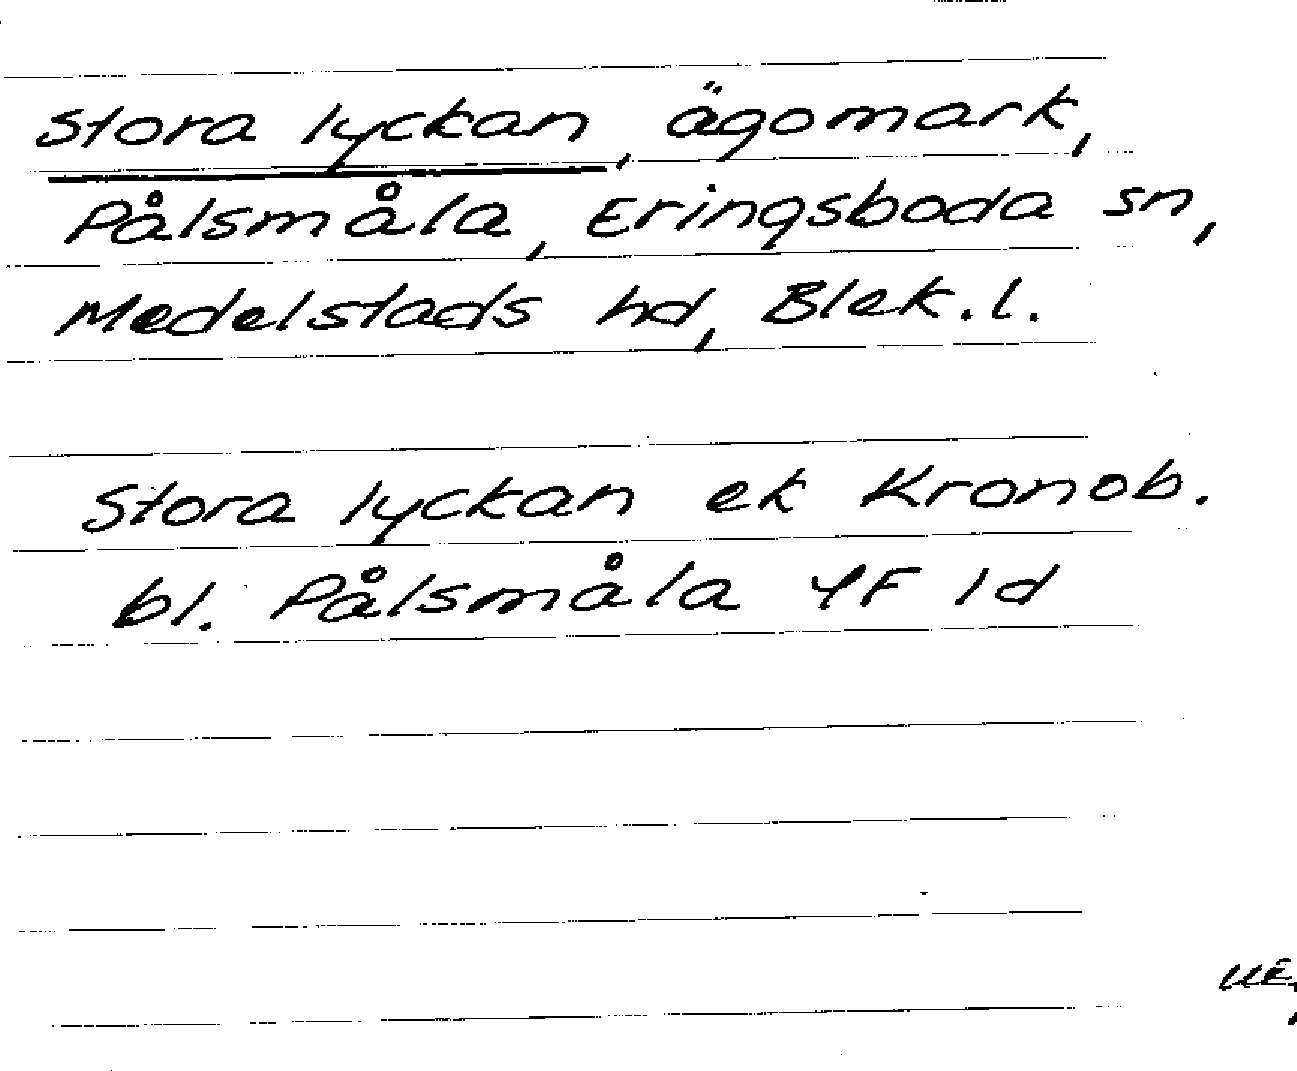 Stora lyckan, ägomark,
Pålsmåla, Eringsboda sn,
Medelstads hd, Blek.l.
Stora lyckan ek Kronob.
bl. Pålsmåla 4F 1d